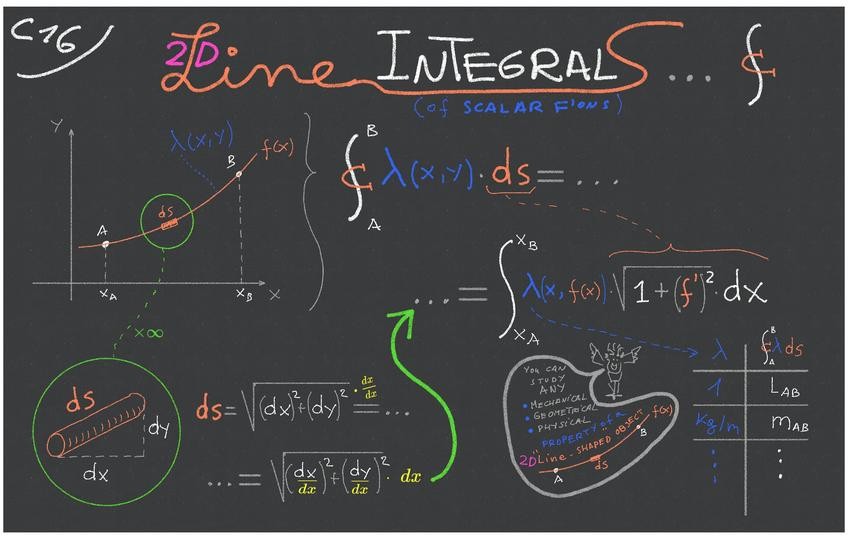 C16
2D Line INTEGRALS... ∮
(of SCALAR F'IONS)
Y
λ(x,y)
f(x)
B
A
ds
x_A
x_B
X
x∞
∮_A^B λ(x,y) · ds = ...
... = ∫_{x_A}^{x_B} λ(x, f(x)) · √(1 + (f')²) · dx
ds
dy
dx
ds = √((dx)² + (dy)²) · dx/dx = ...
... = √((dx/dx)² + (dy/dx)²) · dx
YOU CAN
STUDY
ANY
• MECHANICAL
• GEOMETRICAL
• PHYSICAL
PROPERTY of a
2D "Line-SHAPED" OBJECT
f(x)
B
ds
A
λ ∮_A^B λ ds
1 L_AB
kg/m m_AB
⋮ ⋮